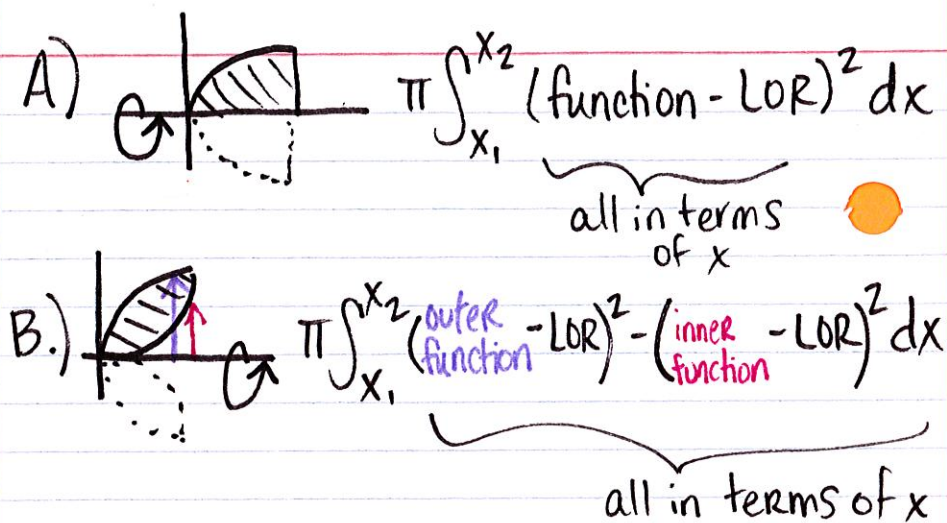 A) π∫x₁x₂ (function - LOR)² dx
all in terms
of x
B.) π∫x₁x₂ (outer function - LOR)² - (inner function - LOR)² dx
all in terms of x